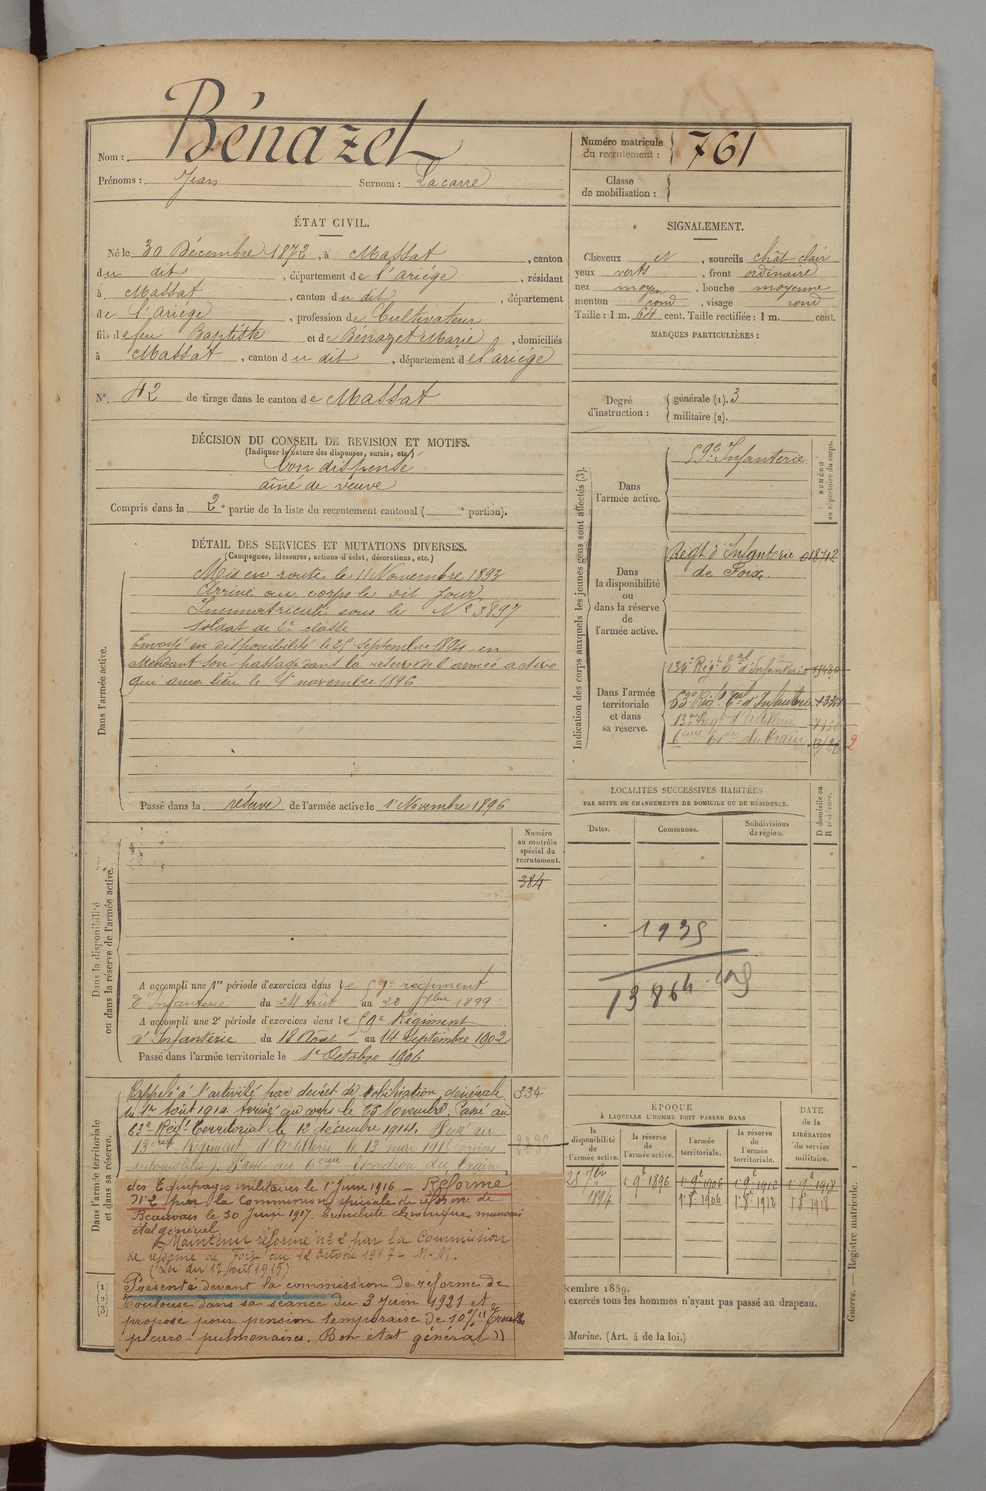 Nom : Bénazet
Prénoms : Jean Surnom : Lacarre
Numéro matricule du recrutement : 761
Classe de mobilisation :
ÉTAT CIVIL.
Né le 30 Décembre 1872, à Massat, canton
du dit, département de l'Ariège, résidant
à Massat, canton du dit, département
de l'Ariège, profession de Cultivateur
fils de feu Baptiste et de Bénazet Marie, domiciliés
à Massat, canton du dit, département de l'ariège
N° 42 de tirage dans le canton de Massat
SIGNALEMENT.
Cheveux N, sourcils chât clair
yeux verts, front ordinaire
nez moyen, bouche moyenne
menton rond, visage rond
Taille : 1 m. 64 cent. Taille rectifiée : 1 m. cent.
MARQUES PARTICULIÈRES :
Degré d'instruction : générale (1). 3
militaire (2).
DÉCISION DU CONSEIL DE REVISION ET MOTIFS.
(Indiquer la nature des dispenses, sursis, etc.)
bon dispensé
aîné de veuve
Compris dans la 2e partie de la liste du recrutement cantonal ( e portion).
DÉTAIL DES SERVICES ET MUTATIONS DIVERSES.
(Campagnes, blessures, actions d'éclat, décorations, etc.)
Dans l'armée active.
Mis en route le 11 Novembre 1893
Arrivé au corps le dit jour
Immatriculé sous le N° 3897
Soldat de 2e classe
Envoyé en disponibilité le 25 septembre 1894 en
attendant son passage dans la réserve de l'armée active
qui aura lieu le 1r novembre 1896
Passé dans la réserve de l'armée active le 1r Novembre 1896
Indication des corps auxquels les jeunes gens sont affectés (3).
NUMÉRO au répertoire du corps.
Dans l'armée active.
59e Infanterie
Dans la disponibilité ou dans la réserve de l'armée active.
Régt d'Infanterie
de Foix
Dans l'armée territoriale et dans sa réserve.
134e Régt tal d'Infanterie
63e Régt tal d'Infanterie
13e Régt d'Artillerie
6ème Eson du Train
LOCALITÉS SUCCESSIVES HABITÉES
PAR SUITE DE CHANGEMENTS DE DOMICILE OU DE RÉSIDENCE.
Dates. Communes. Subdivisions de région. D domicile ou R résidence.
1935
Dans la disponibilité ou dans la réserve de l'armée active.
Numéro au contrôle spécial du recrutement.
384
A accompli une 1re période d'exercices dans le 59e régiment
d'Infanterie du 24 août au 20 7bre 1899
A accompli une 2e période d'exercices dans le 59e Régiment
d'Infanterie du 18 Août au 14 Septembre 1902
Passé dans l'armée territoriale le 1r Octobre 1906
Dans l'armée territoriale et dans sa réserve.
Rappelé à l'activité par décret de mobilisation générale 334
du 1er Août 1914 Arrivé au corps le 25 Novembre. Passé au
63e Régt Territorial le 12 décembre 1914. Passé au
13ème Régiment d'Artillerie le 13 mai 1915
automobiles). Passé au 6ème Escadron du Train
des Équipages militaires le 1r Juin 1916 - Réformé
N°2 par la Commission spéciale de réforme de
Beauvais le 30 Juin 1917. bronchite chronique, mauvais
état général.
Maintenu réformé n° 2 par la Commission
de réforme de Foix du 12 octobre 1917 -
(Loi du 17 août 1915)
Présenté devant la commission de réforme de
Toulouse dans sa séance du 3 Juin 1921 et
proposé pour pension temporaire de 10%
pleuro-pulmonaires. Bon état général"
ÉPOQUE
À LAQUELLE L'HOMME DOIT PASSER DANS
la disponibilité de l'armée active. la réserve de l'armée active. l'armée territoriale. la réserve de l'armée territoriale.
DATE de la LIBÉRATION du service militaire.
1894
écembre 1889.
exercés tous les hommes n'ayant pas passé au drapeau.
Marine. (Art. 4 de la loi.)
Guerre. — Registre matricule. 1